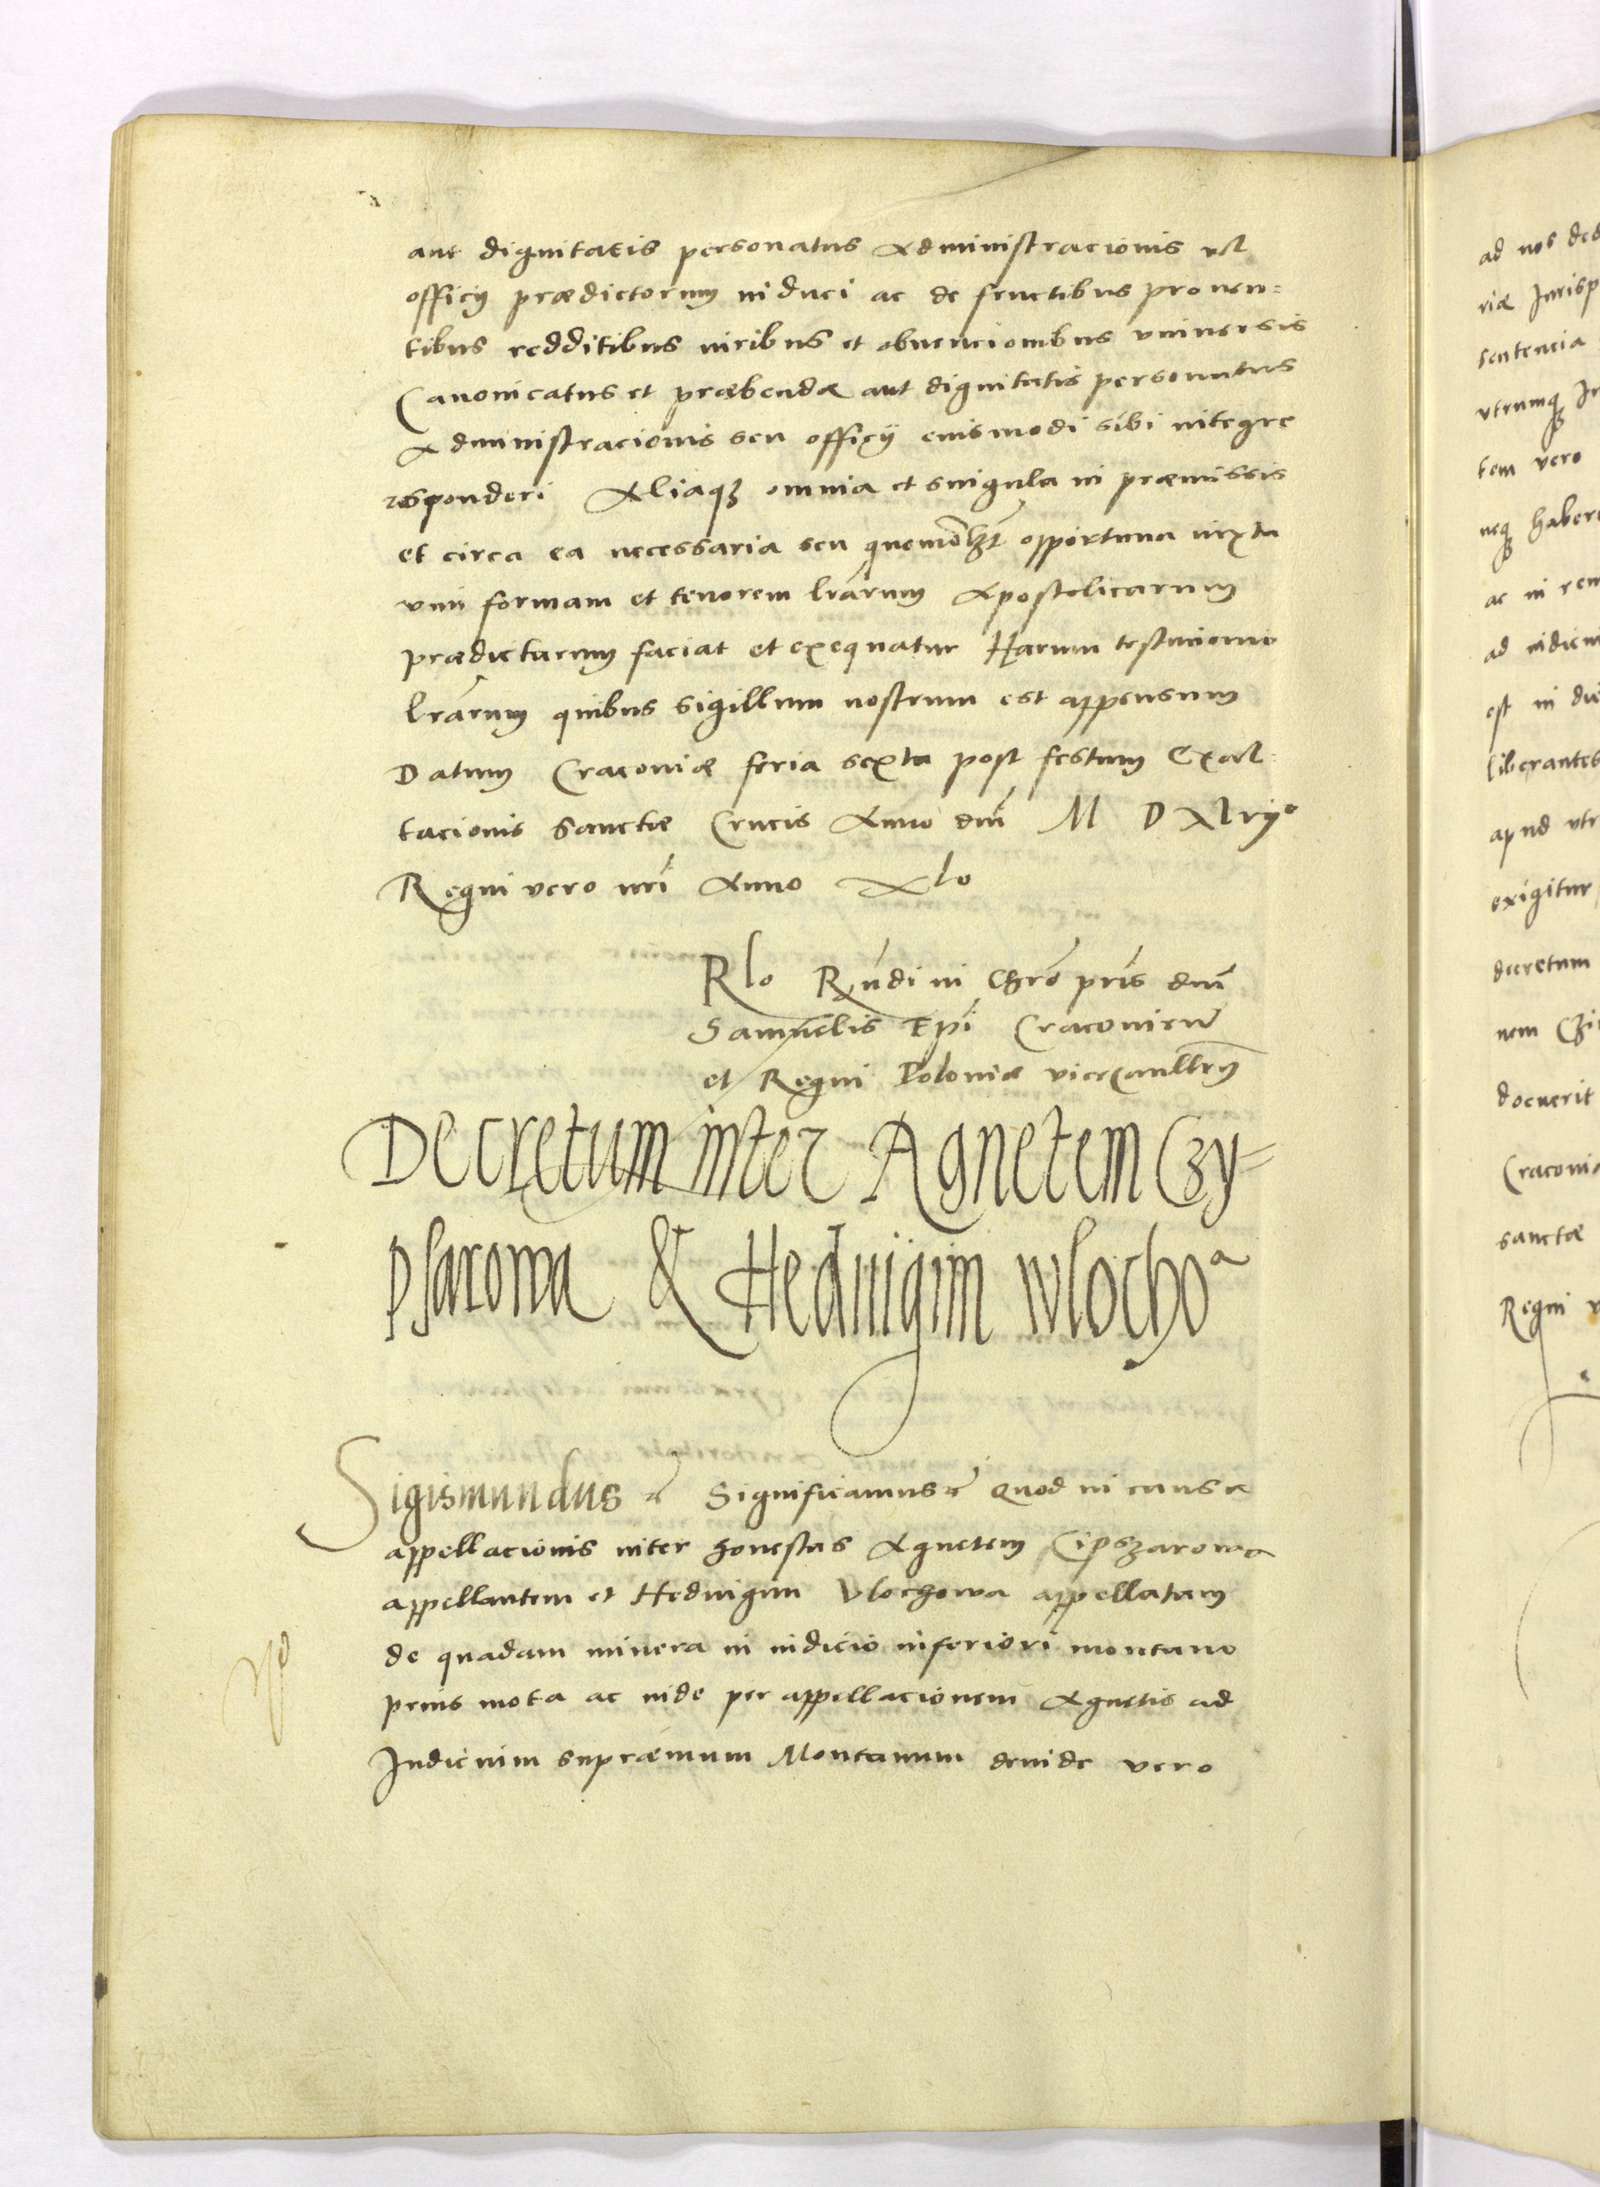 aut dignitatis personatus Administracionis vel
officij prædictorum induci ac de fructibus proven=
tibus redditibus iuribus et obuencionibus vniuersis
Canonicatus et præbendæ aut dignitatis personatus
Administracionis seu officij eiusmodi sibi integre
responderi Aliaqз omnia et singula in præmissis
et circa ea necessaria seu opportuna iuxta
vim formam et tenorem lrarum Apostolicarum
prædictarum faciat et exequatur Harum testimonio
lrarum quibus sigillum nostrum est appensum
Datum Cracoviæ feria sexta post festum Exal=
tacionis Sanctæ Crucis Anno dni M D XLvjo
Regni vero nri Anno XLo
Rlo Rndi in Chro pris dni
Samuelis Epi Cracovien
et Regni Poloniæ vicecancellrij
Decretum inter Agnetem Czy=
psarowa & Hedvigim wlocho a
Sigismundus Significamus Quod in causa
appellacionis inter honestas Agnetem Cipszarowa
appellantem et Hedvigim Vlochowa appellatam
de quadam minera in iudicio inferiori montano
prius mota ac inde per appellacionem Agnetis ad
Iudicium supræmum Montanum deinde vero
ad nos
riæ Jurisp
sentencia
vtrumqз
tem vero
neqз habere
ac in rem
ad iudici
est in
liberantes
apud vtr
exigitur
decretum
nem
docuerit
Cracoviæ
sanctæ
Regni